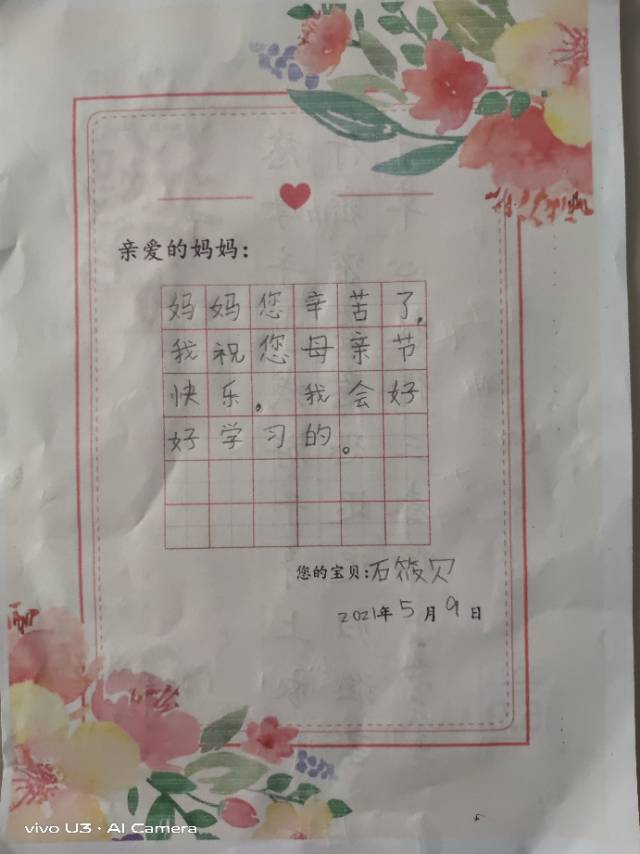 亲爱的妈妈：
妈妈您辛苦了，
我祝您母亲节
快乐。我会好
好学习的。
您的宝贝：石筱贝
2021年5月9日
vivo U3·AI Camera